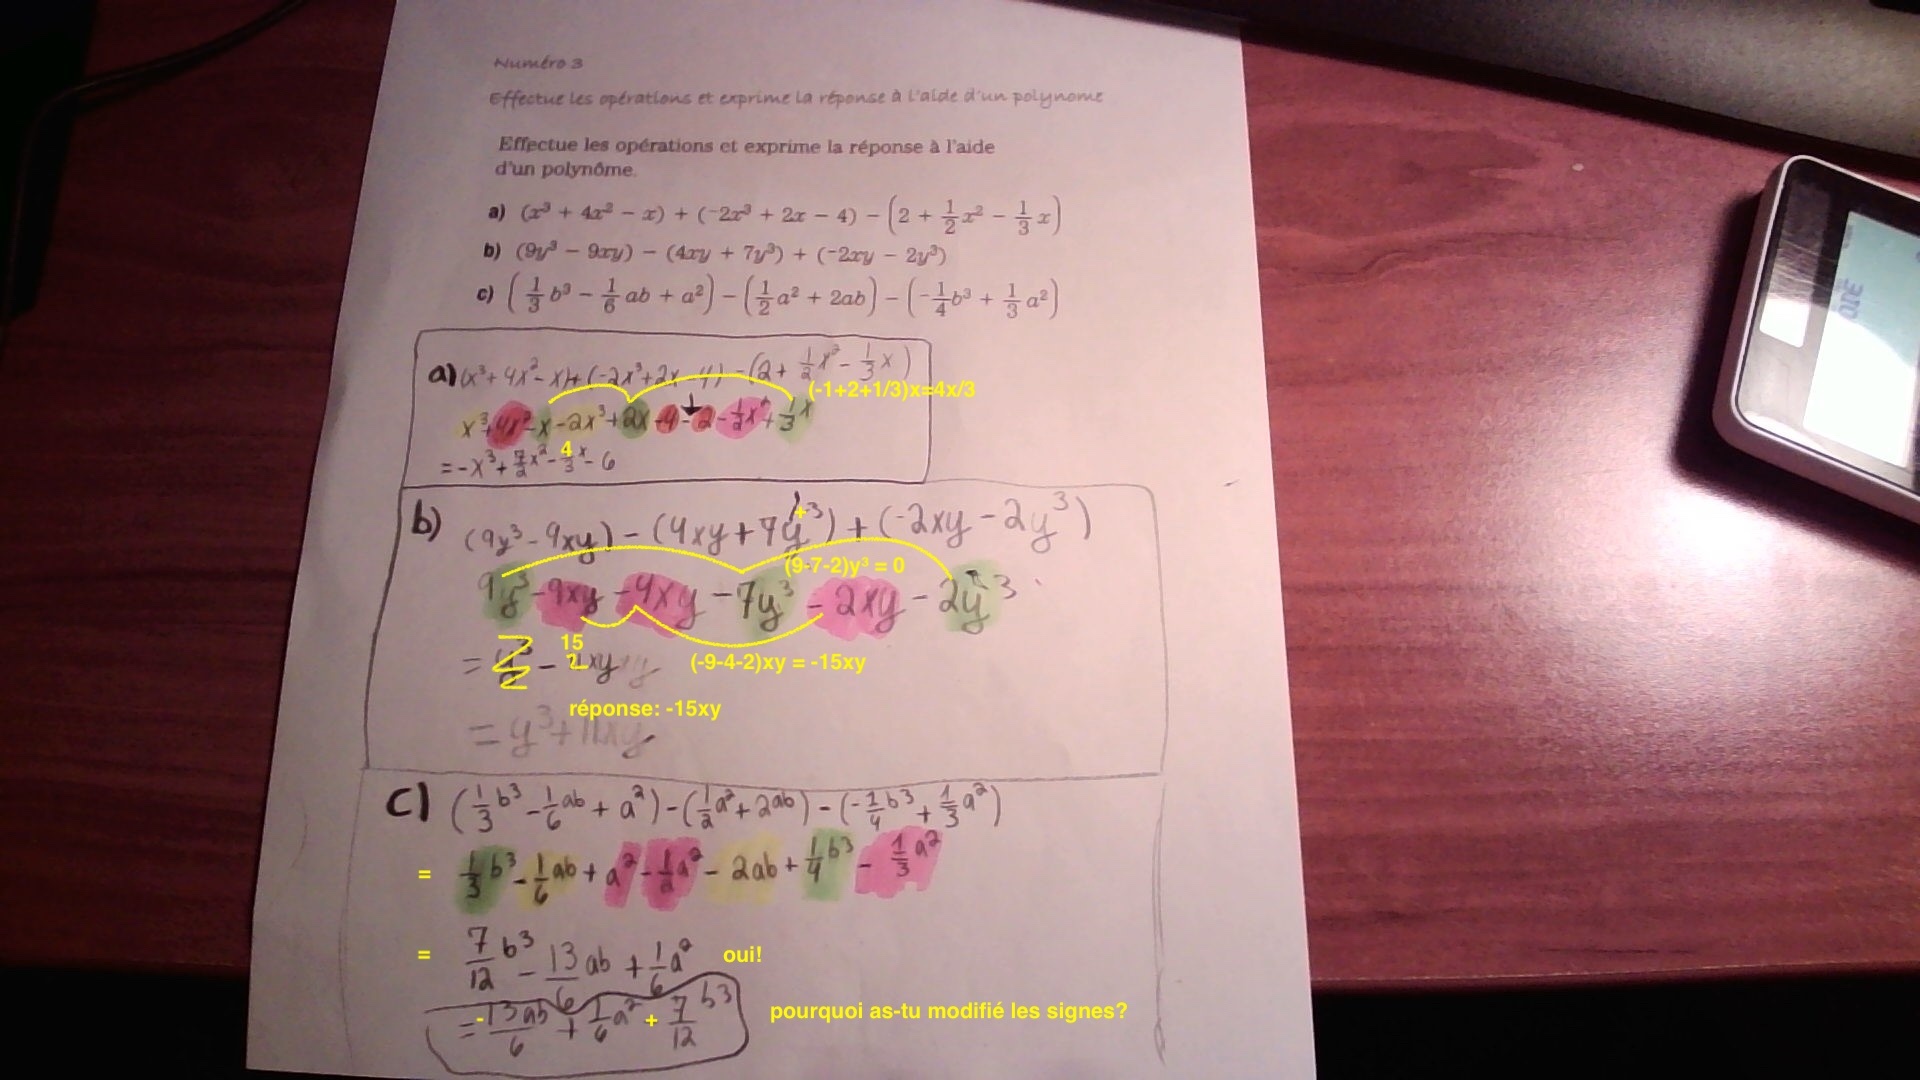 Numéro 3
Effectue les opérations et exprime la réponse à l'aide d'un polynome
Effectue les opérations et exprime la réponse à l'aide
d'un polynôme.
a) (x³ + 4x² − x) + (⁻2x³ + 2x − 4) − (2 + 1/2 x² − 1/3 x)
b) (9y³ − 9xy) − (4xy + 7y³) + (⁻2xy − 2y³)
c) (1/3 b³ − 1/6 ab + a²) − (1/2 a² + 2ab) − (⁻1/4 b³ + 1/3 a²)
a) (x³ + 4x² − x) + (⁻2x³ + 2x − 4) − (2 + 1/2 x² − 1/3 x)
(-1+2+1/3)x=4x/3
x³ + 4x² − x − 2x³ + 2x − 4 − 2 − 1/2 x² + 1/3 x
= −x³ + 7/2 x² − 4/3 x − 6
b) (9y³ − 9xy) − (4xy + 7y³) + (⁻2xy − 2y³)
(9-7-2)y³ = 0
9y³ − 9xy − 4xy − 7y³ − 2xy − 2y³
= − 15 xy
(-9-4-2)xy = -15xy
réponse: -15xy
= y³ + 11xy
c) (1/3 b³ − 1/6 ab + a²) − (1/2 a² + 2ab) − (−1/4 b³ + 1/3 a²)
= 1/3 b³ − 1/6 ab + a² − 1/2 a² − 2ab + 1/4 b³ − 1/3 a²
= 7/12 b³ − 13/6 ab + 1/6 a² oui!
= -13ab/6 + 1/6 a² + 7/12 b³ pourquoi as-tu modifié les signes?